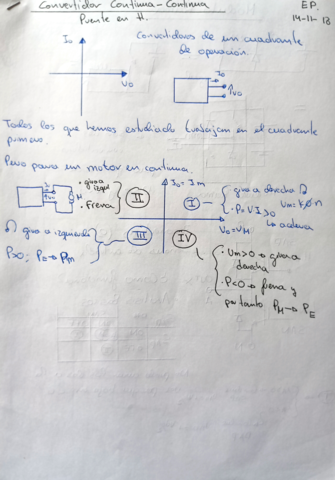 Convertidor Continua-Continua
EP.
Puente en H.
14-11-18
Io
Vo
Convertidores de un cuadrante
de operación.
Io
Vo
Todos los que hemos estudiado trabajan en el cuadrante
primero.
Pero para un motor en continua.
M
· gira a
izqui
· Frena
II
Io = Im
I
· gira a derecha
Um = K∅n
· P = V·I > 0
↳ acelera
Vo = VM
gira a izquierda
P>0; PE → PM
III
IV
· Um>0 → gira a
derecha
· P<0 → frena y
por tanto PM → PE